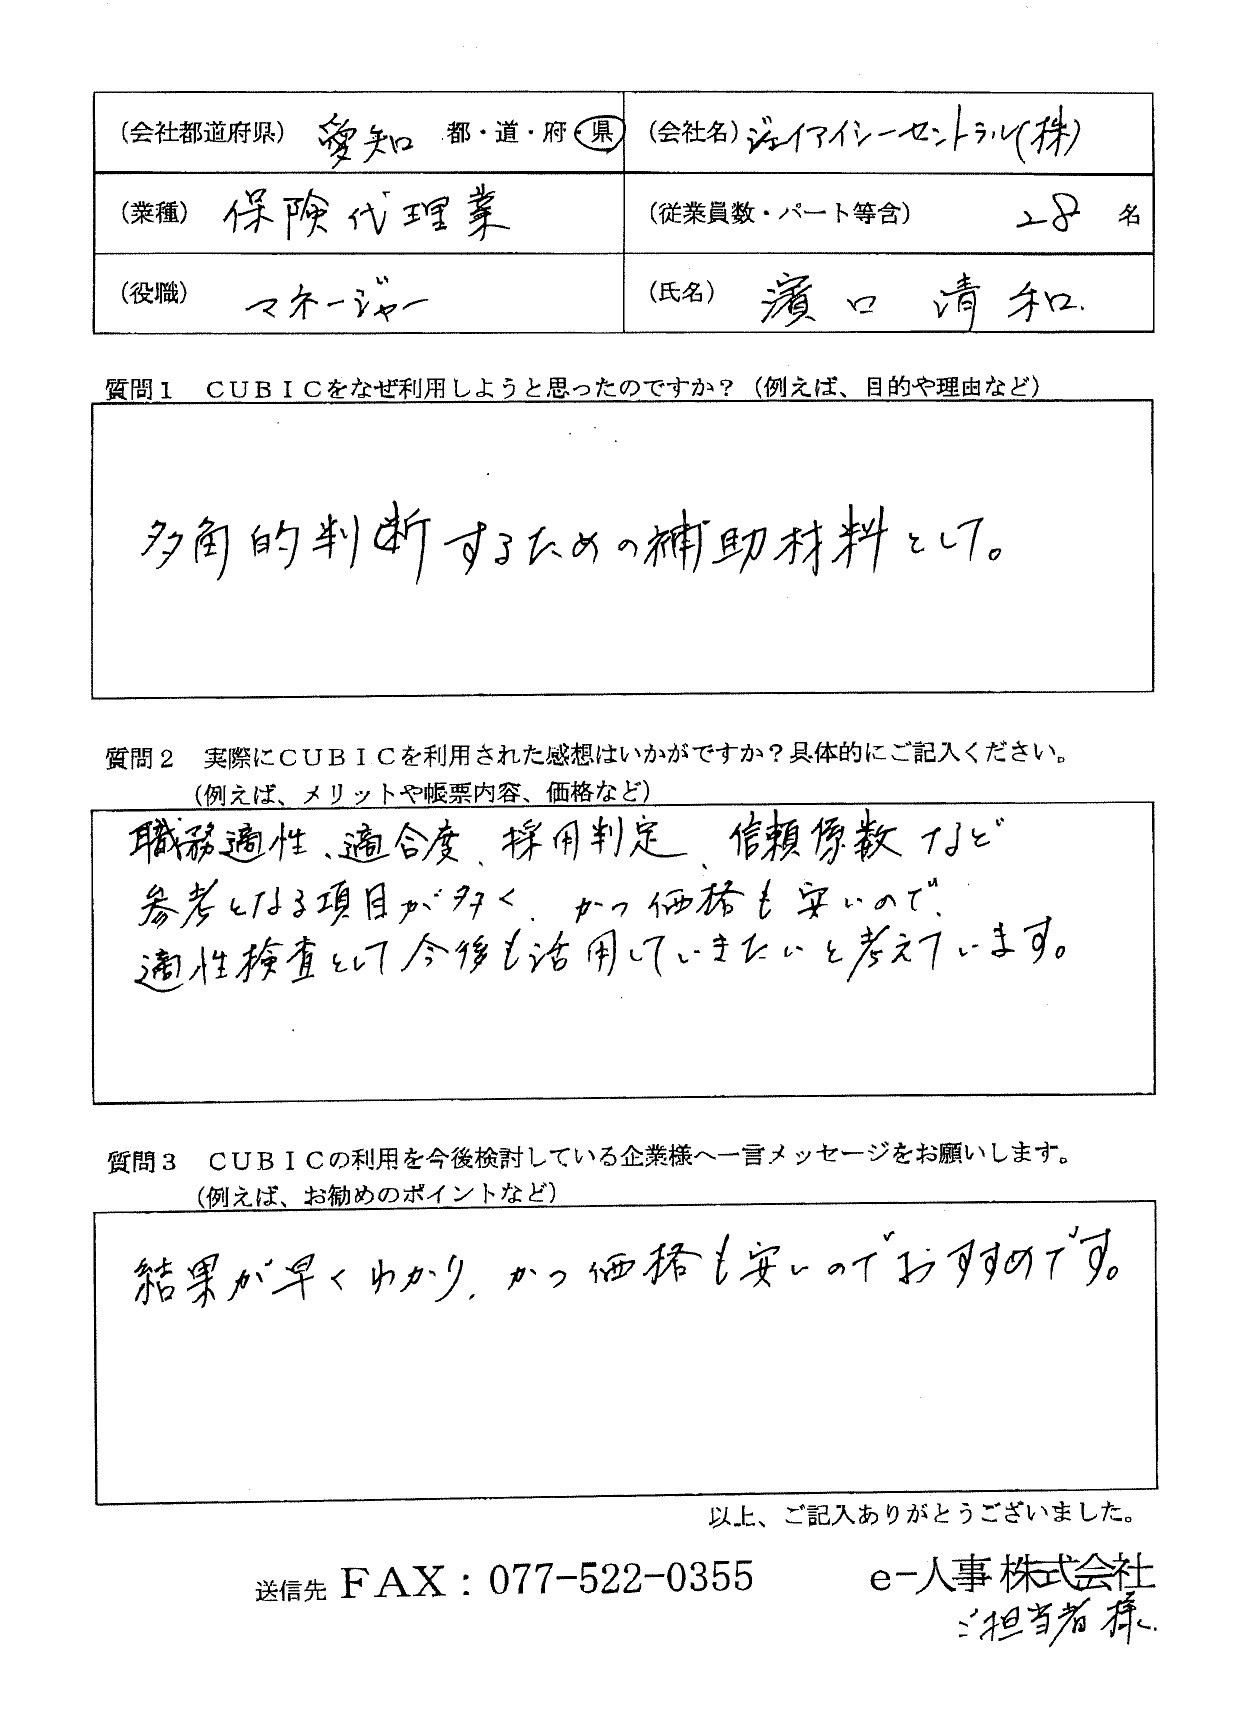 (会社都道府県) 愛知 都・道・府・県 (会社名) ジェイアイシーセントラル(株)
(業種) 保険代理業 (従業員数・パート等含) 28 名
(役職) マネージャー (氏名) 濱口 清和.
質問1 CUBICをなぜ利用しようと思ったのですか?(例えば、目的や理由など)
多角的判断するための補助材料として。
質問2 実際にCUBICを利用された感想はいかがですか?具体的にご記入ください。
(例えば、メリットや帳票内容、価格など)
職務適性、適合度、採用判定、信頼係数など
参考となる項目が多く、かつ価格も安いので、
適性検査として今後も活用していきたいと考えています。
質問3 CUBICの利用を今後検討している企業様へ一言メッセージをお願いします。
(例えば、お勧めのポイントなど)
結果が早くわかり、かつ価格も安いのでおすすめです。
以上、ご記入ありがとうございました。
送信先 FAX：077-522-0355 e-人事株式会社
ご担当者様.